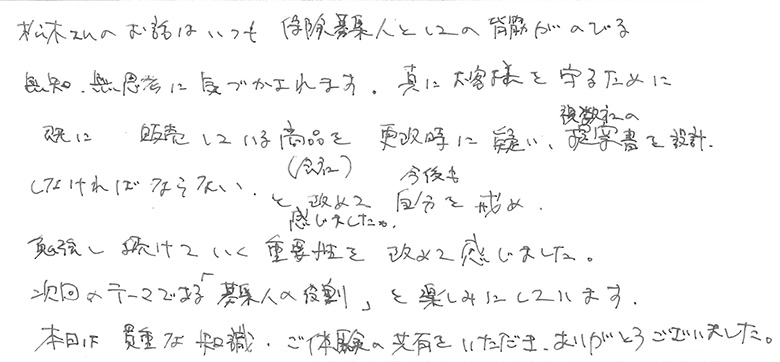 松本さんのお話はいつも 保険募集人としての背筋がのびる
無知、無思考に気づかされます。真にお客様を守るために
複数社の
既に 販売している商品を 更改時に疑い、提案書を設計.
(会社) 今後も
しなければならない. と改めて 自分を戒め.
感じました。
勉強し続けていく重要性を改めて感じました。
次回のテーマである「募集人の役割」を楽しみにしています.
本日は貴重な知識・ご体験の共有をいただき、ありがとうございました。